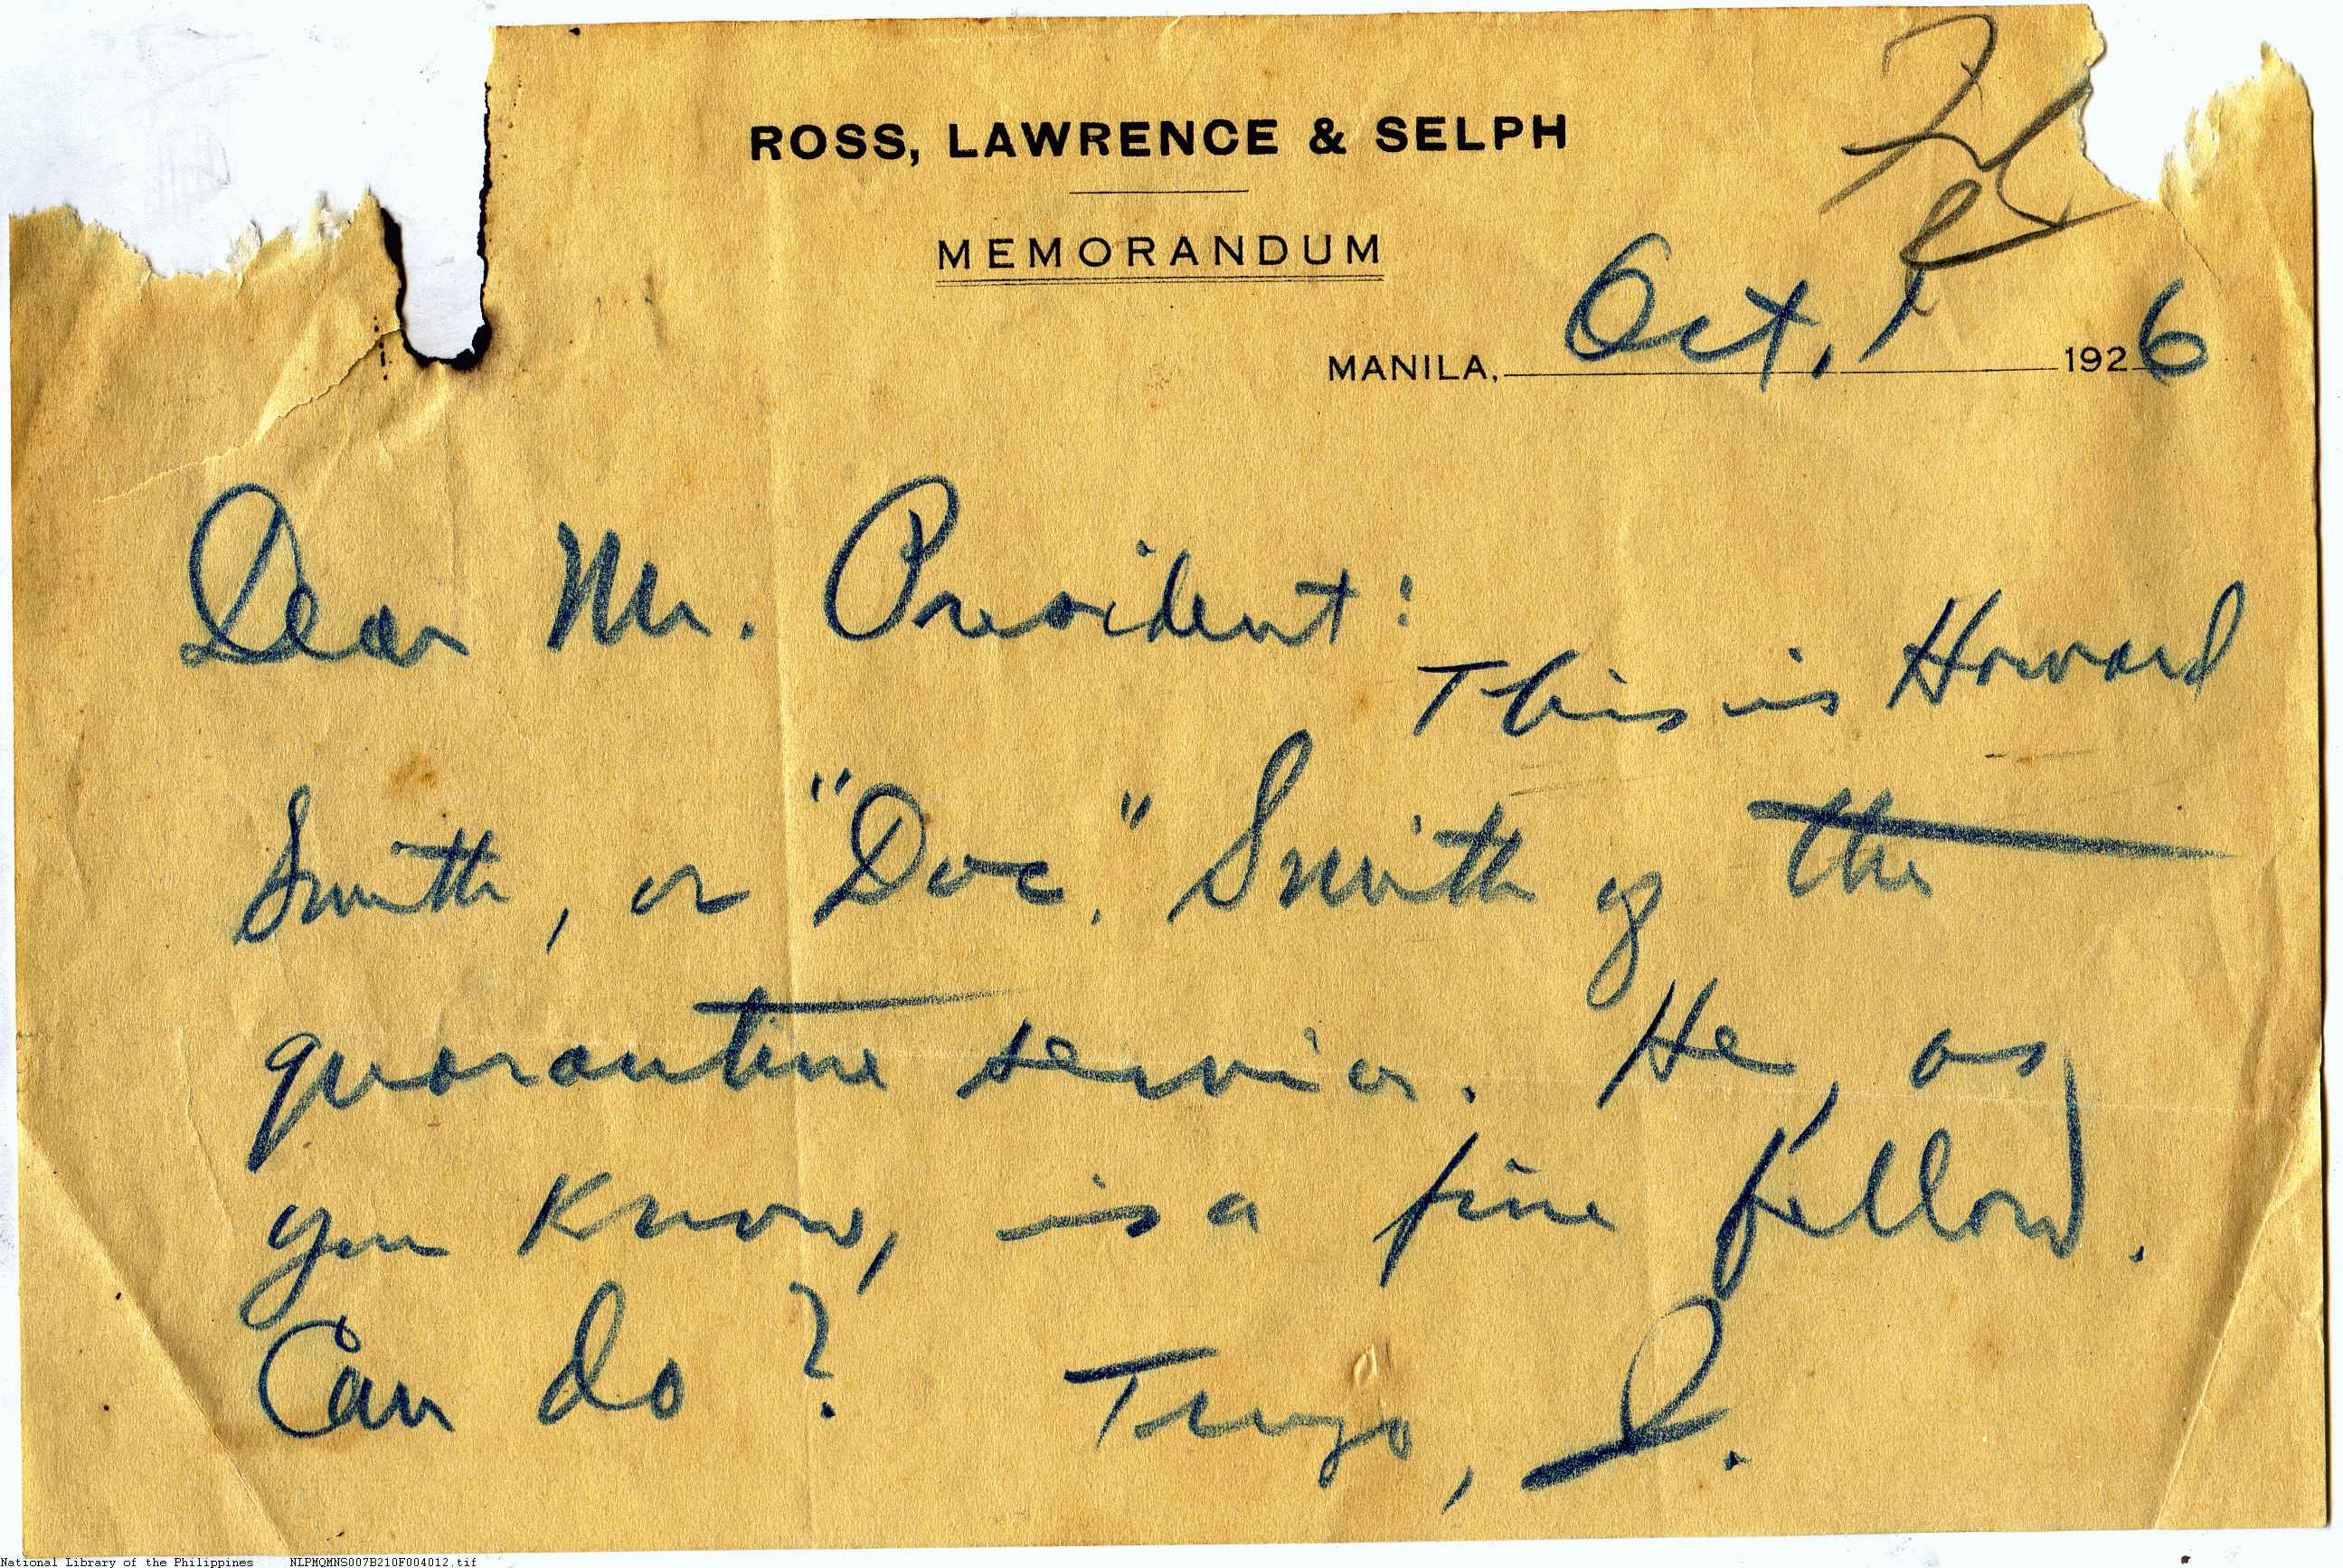 ROSS, LAWRENCE & SELPH
MEMORANDUM
MANILA, Oct. 1 1926
Dear Mr. President:
This is Howard
Smith, or "Doc." Smith of the
quarantine service. He, as
you know, is a fine fellow.
Can do?
National Library of the Philippines NLPMQMNS007B210F004012.tif